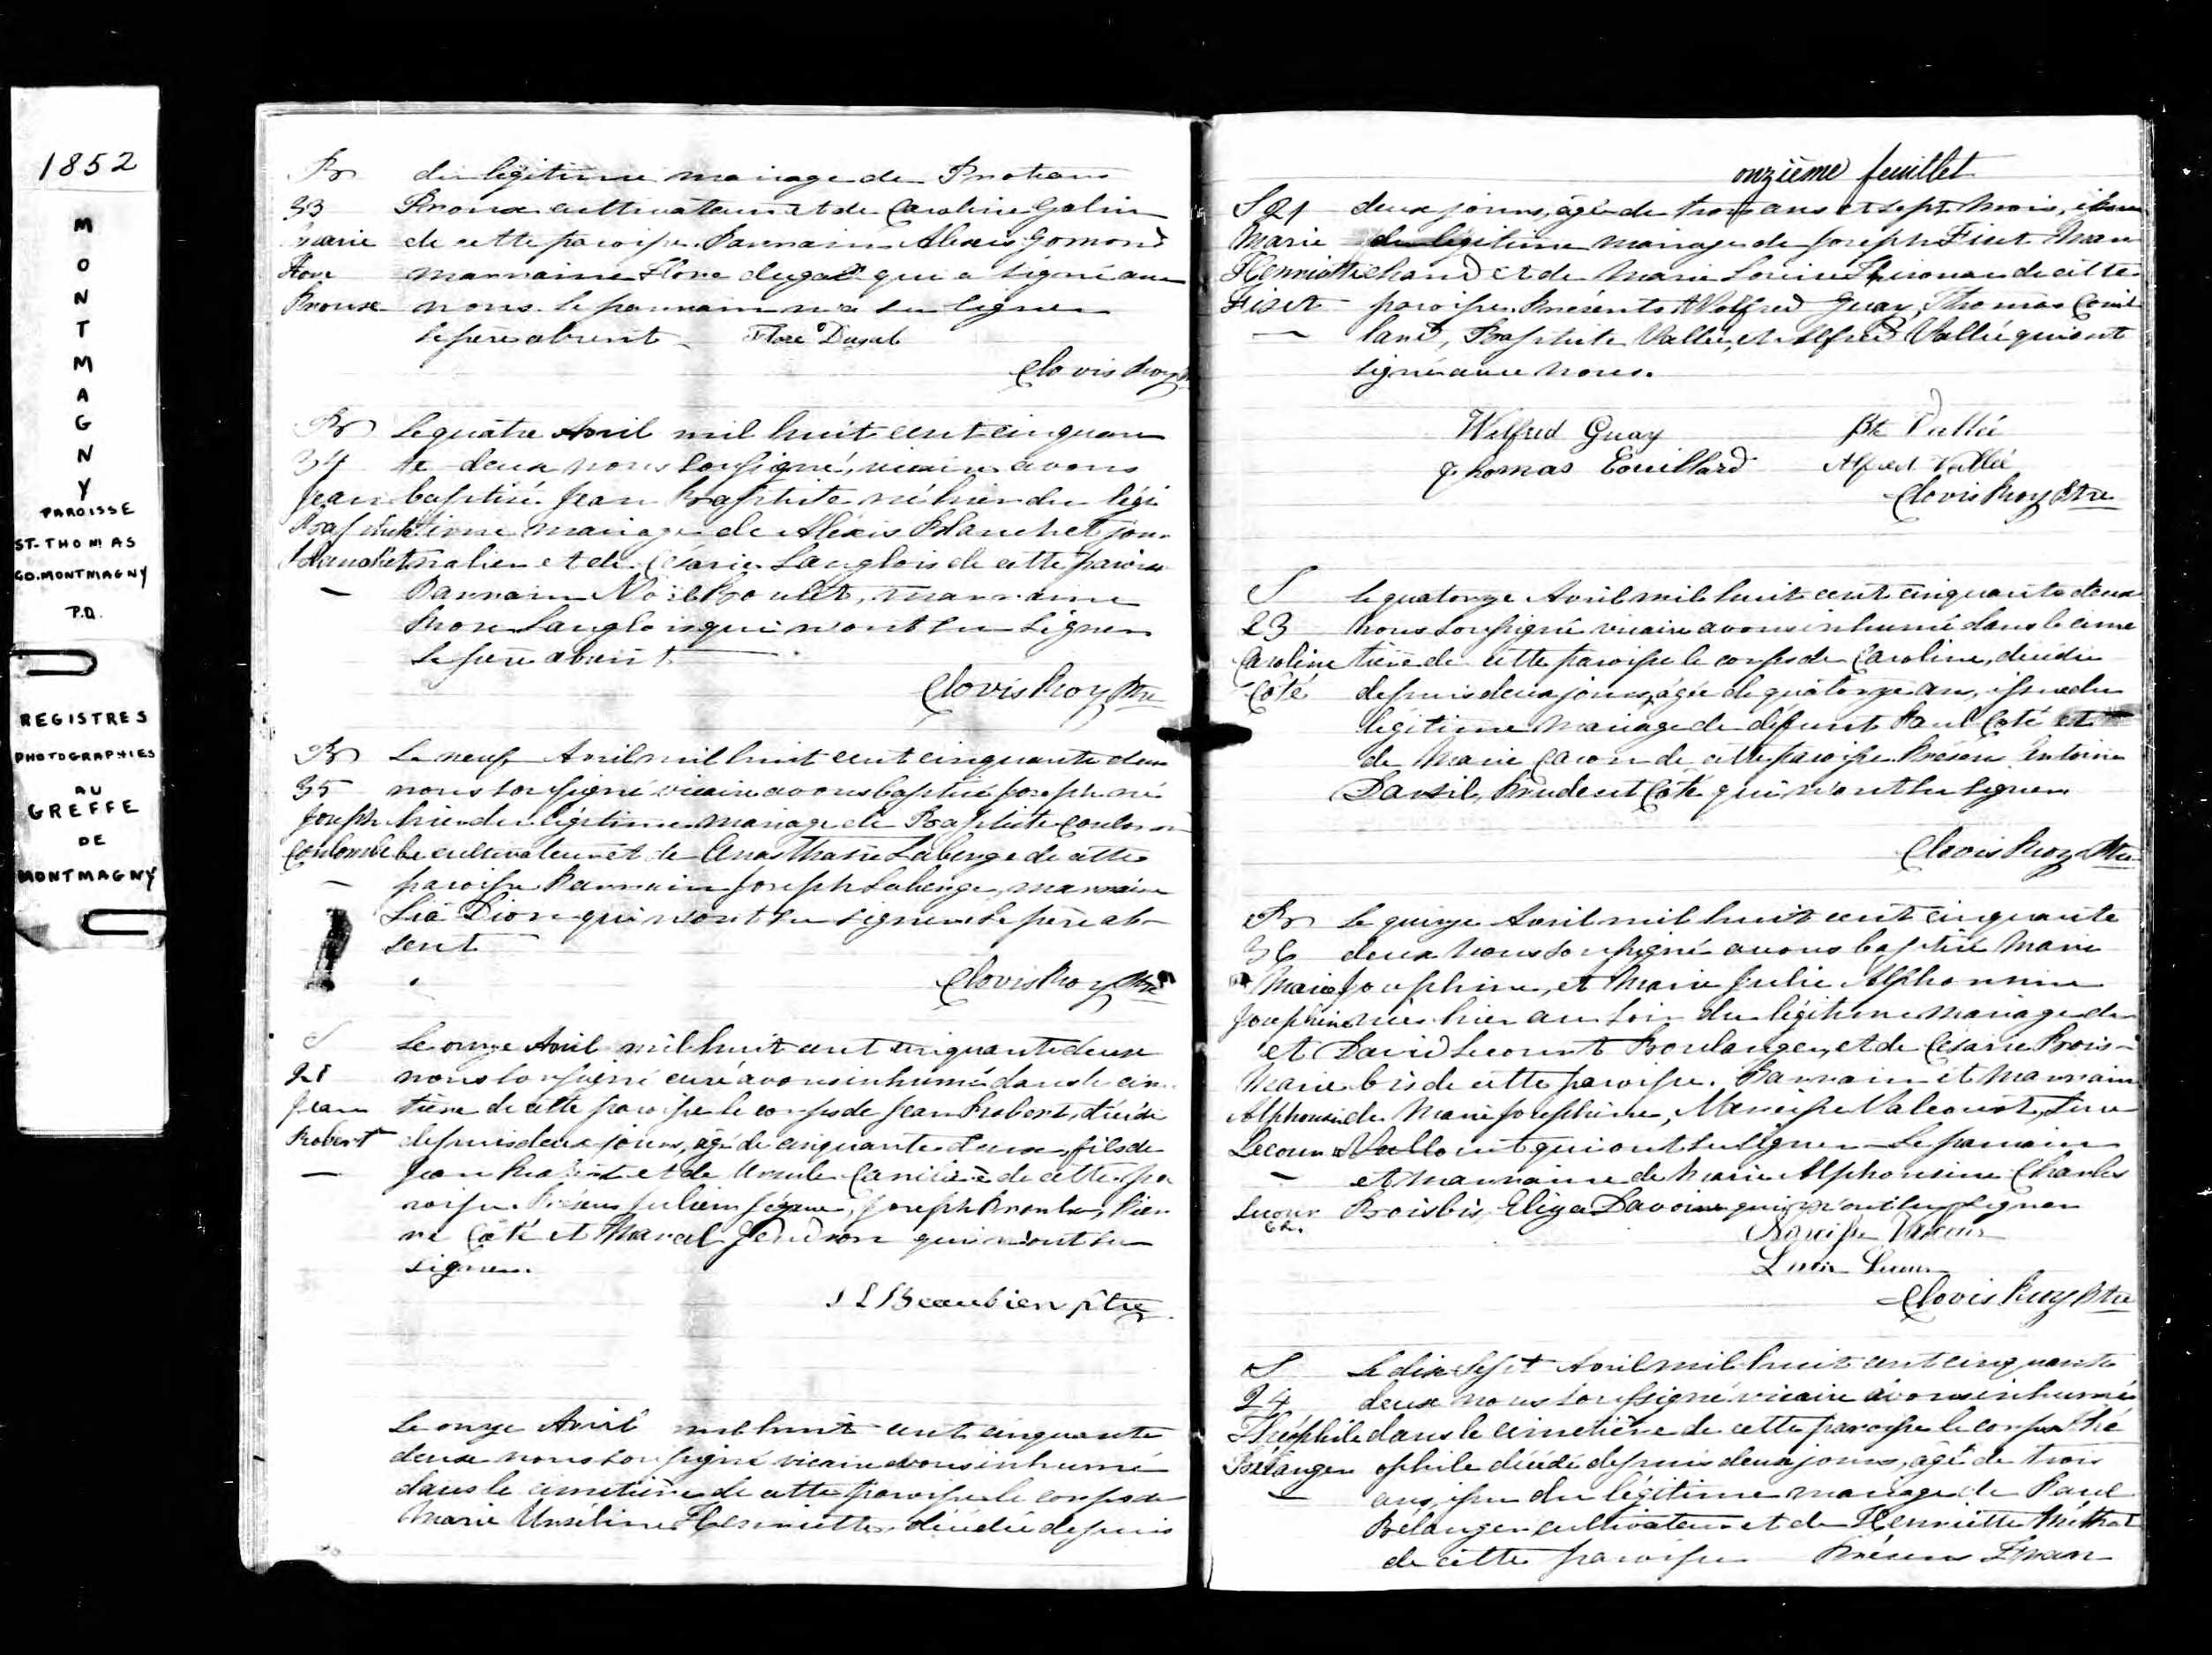 1852
MONTMAGNY
PAROISSE
ST-THOMAS
CO. MONTMAGNY
P.Q.
REGISTRES
PHOTOGRAPHIES
AU
GREFFE
DE
MONTMAGNY
B
33
Marie
Flore
Proux
du légitime mariage de
Proux cultivateur et de Caroline Galin
de cette paroisse. Parrain Alexis Gomond
marraine Flore dugal qui a signé avec
nous. le parrain n'a su signer
le père absent Flore Dugal
Clovis Roy
B
34
Jean
Baptiste
Blanchet
Le quatre Avril mil huit cent cinquan
te deux nous soussigné, vicaire avons
baptisé Jean Baptiste né hier du légi
time mariage de Alexis Blanchet jour
nalier et de Césarie Langlois de cette paroisse
Parrain Noël Boulet, marraine
Rose Langlois qui n'ont su signer
le père absent
Clovis Roy Ptre
B
35
Joseph
Coulombe
Le neuf Avril mil huit cent cinquante deux
nous soussigné vicaire avons baptisé Joseph né
hier du légitime mariage de Baptiste Coulom
be cultivateur et de Anasthasie Laberge de cette
paroisse Parrain Joseph Laberge, marraine
Lia Dion qui n'ont su signer le père ab
sent
Clovis Roy Ptre
S
21
Jean
Robert
Le onze Avril mil huit cent cinquante deux
nous soussigné curé avons inhumé dans le cime
tière de cette paroisse le corps de Jean Robert, décédé
depuis deux jours, âgé de cinquante deux, fils de
Jean Robert et de Ursule de cette pa
roisse. Présens Julien, Joseph, Pier
re Côté et Marcel Gendron qui n'ont su
signer.
J L Beaubien ptre
Le onze Avril mil huit cent cinquante
deux nous soussigné vicaire avons inhumé
dans le cimetière de cette paroisse le corps de
Marie Henriette, décédée depuis
onzième feuillet
S 21
Marie
Henriette
Fiset
deux jours, âgée de trois ans et sept mois,
du légitime mariage de Joseph Fiset Mar
chand et de Marie Louise de cette
paroisse. Présents Wilfred Guay, Thomas Couil
lard, Baptiste Vallée, et Alfred Vallée qui ont
signé avec nous.
Wilfred Guay Bte Vallée
Thomas Couillard Alfred Vallée
Clovis Roy Ptre
S
23
Caroline
Côté
Le quatorze Avril mil huit cent cinquante deux
nous soussigné vicaire avons inhumé dans le cime
tière de cette paroisse le corps de Caroline, décédée
depuis deux jours, âgée de quatorze ans, issue du
légitime mariage de défunt Paul Côté et
de Marie de cette paroisse Présens Antoine
Prudent Côté qui n'ont su signer
Clovis Roy Ptre
B
36
Marie
Josephine
et
Marie
Alphonsine
Lecour
Le quinze Avril mil huit cent cinquante
deux nous soussigné avons baptisé Marie
Josephine, et Marie Julie Alphonsine
nées hier au soir du légitime mariage de
David Lecourt Boulanger, et de Césarie Bois
bris de cette paroisse. Parrain et marraine
de Marie Josephine, Narcisse Valcourt,
qui ont su signer Le parrain
et marraine de Marie Alphonsine Charles
Boisbris, Eliza Lavoie qui n'ont su signer
Narcisse Valcour
Clovis Roy Ptre
S
24
Théophile
Bélanger
Le dix sept Avril mil huit cent cinquante
deux nous soussigné vicaire avons inhumé
dans le cimetière de cette paroisse le corps Thé
ophile décédé depuis deux jours, âgé de trois
ans, issu du légitime mariage de Paul
Bélanger cultivateur et de Henriette Méthot
de cette paroisse Présens Fran